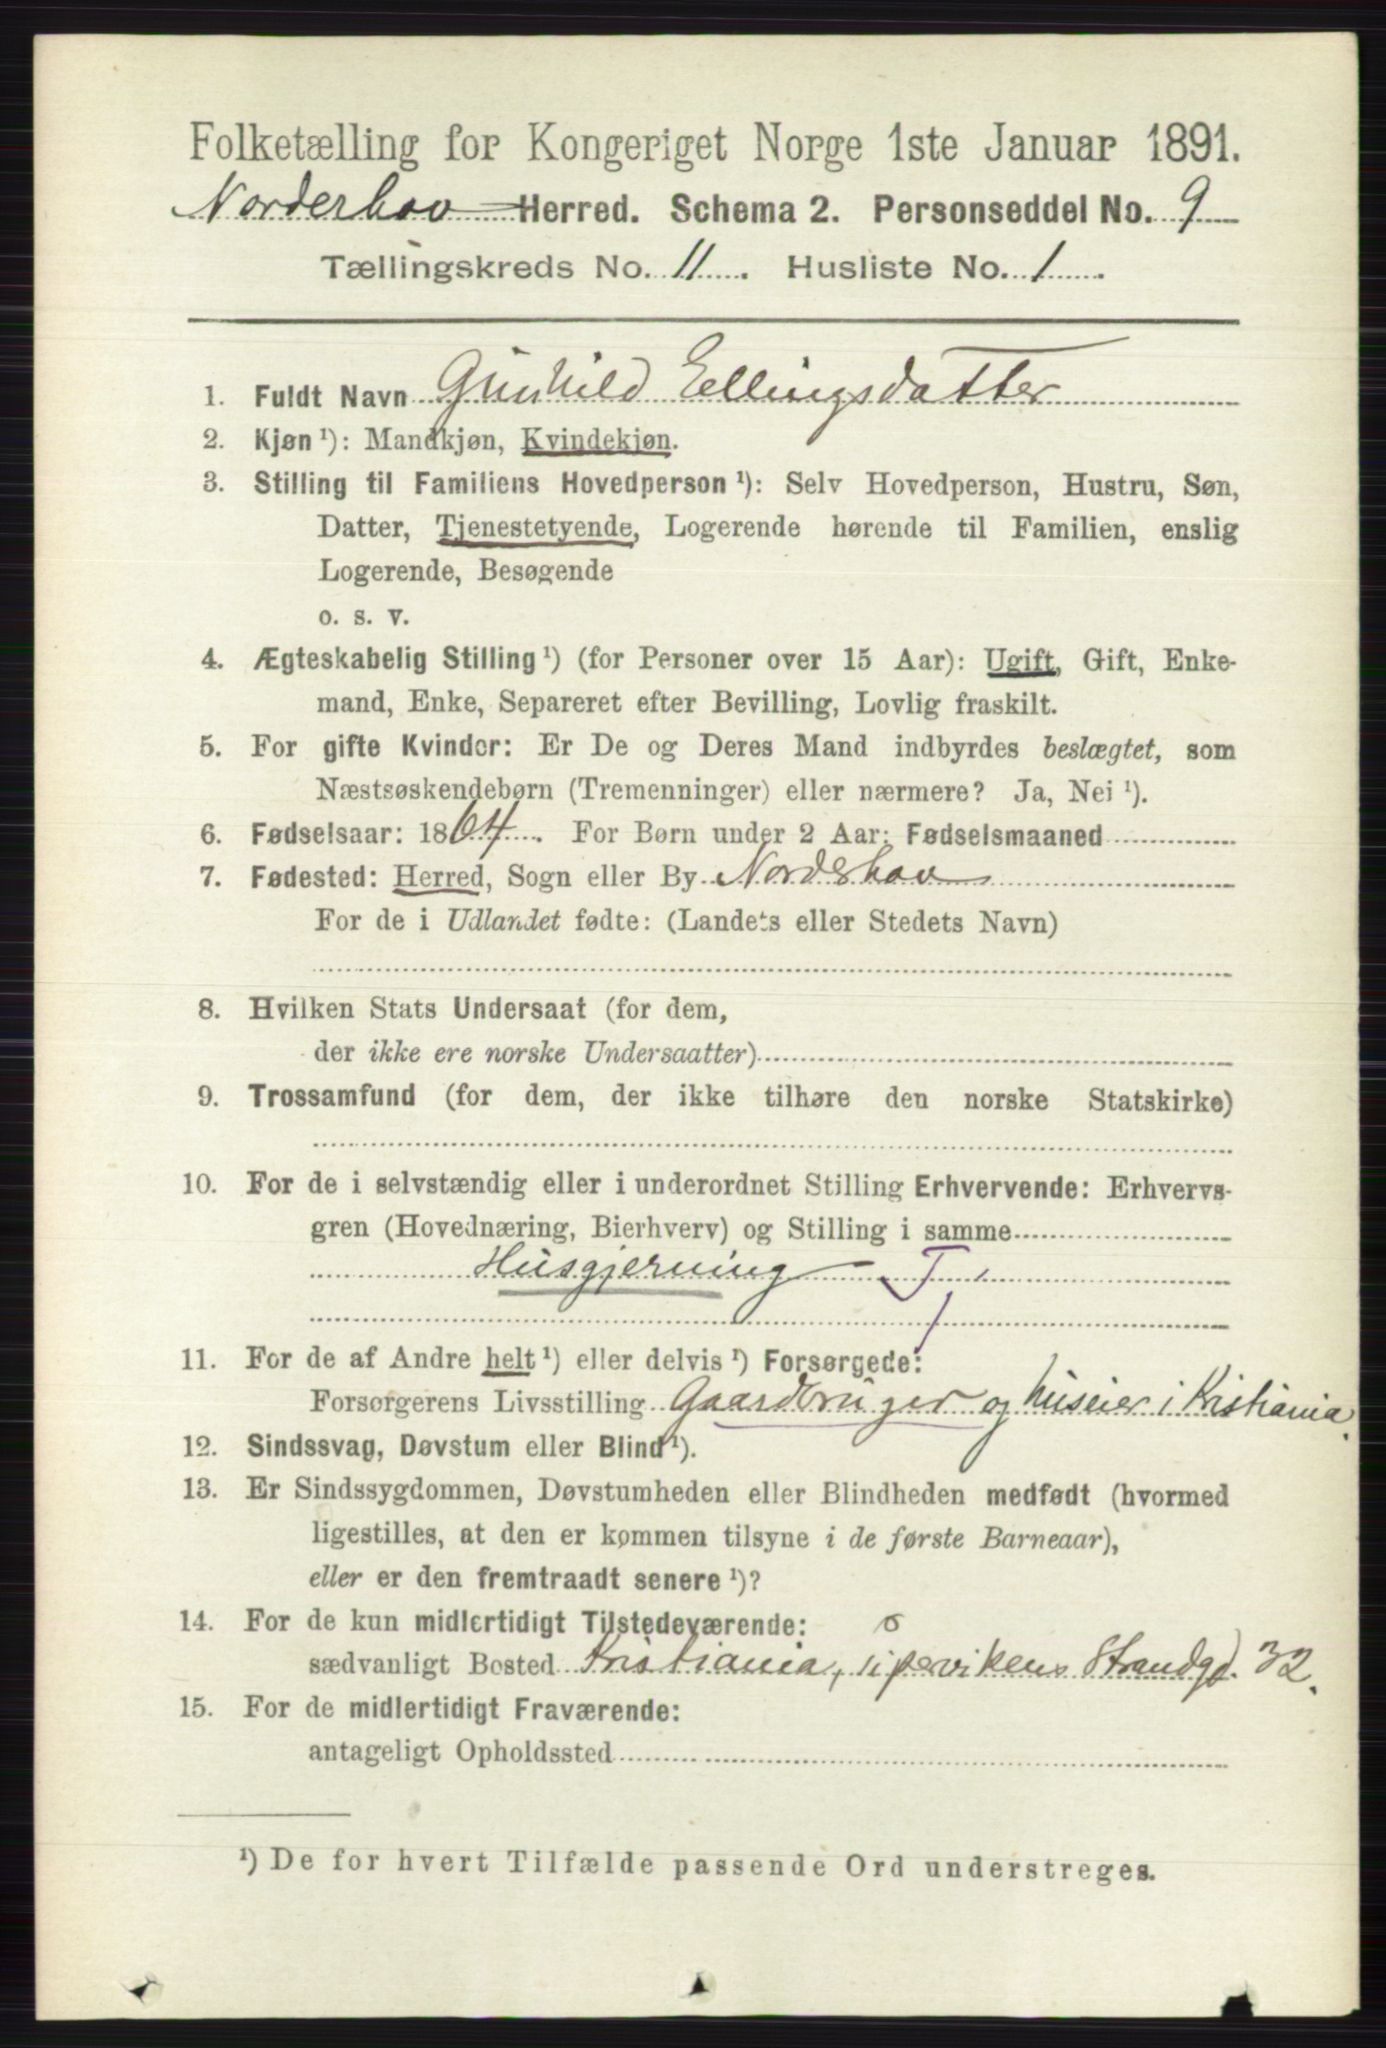 Folketælling for Kongeriget Norge 1ste Januar 1891.
Norderhov Herred. Schema 2. Personseddel No. 9
Tællingskreds No. 11. Husliste No. 1.
1. Fuldt Navn Gunhild Ellingsdatter
2. Kjøn ¹): Mandkjøn, Kvindekjøn.
3. Stilling til Familiens Hovedperson ¹): Selv Hovedperson, Hustru, Søn,
Datter, Tjenestetyende, Logerende hørende til Familien, enslig
Logerende, Besøgende
o. s. v.
4. Ægteskabelig Stilling ¹) (for Personer over 15 Aar): Ugift, Gift, Enke-
mand, Enke, Separeret efter Bevilling, Lovlig fraskilt.
5. For gifte Kvinder: Er De og Deres Mand indbyrdes beslægtet, som
Næstsøskendebørn (Tremenninger) eller nærmere? Ja, Nei ¹).
6. Fødselsaar: 1864. For Børn under 2 Aar: Fødselsmaaned
7. Fødested: Herred, Sogn eller By Norderhov
For de i Udlandet fødte: (Landets eller Stedets Navn)
8. Hvilken Stats Undersaat (for dem,
der ikke ere norske Undersaatter)
9. Trossamfund (for dem, der ikke tilhøre den norske Statskirke)
10. For de i selvstændig eller i underordnet Stilling Erhvervende: Erhvervs-
gren (Hovednæring, Bierhverv) og Stilling i samme
Husgjerning T
11. For de af Andre helt ¹) eller delvis ¹) Forsørgede:
Forsørgerens Livsstilling Gaardbruger og huseier i Kristiania.
12. Sindssvag, Døvstum eller Blind ¹).
13. Er Sindssygdommen, Døvstumheden eller Blindheden medfødt (hvormed
ligestilles, at den er kommen tilsyne i de første Barneaar),
eller er den fremtraadt senere ¹)?
14. For de kun midlertidigt Tilstedeværende:
sædvanligt Bosted Kristiania, Pipervikens Strandgd. 32.
15. For de midlertidigt Fraværende:
antageligt Opholdssted
¹) De for hvert Tilfælde passende Ord understreges.